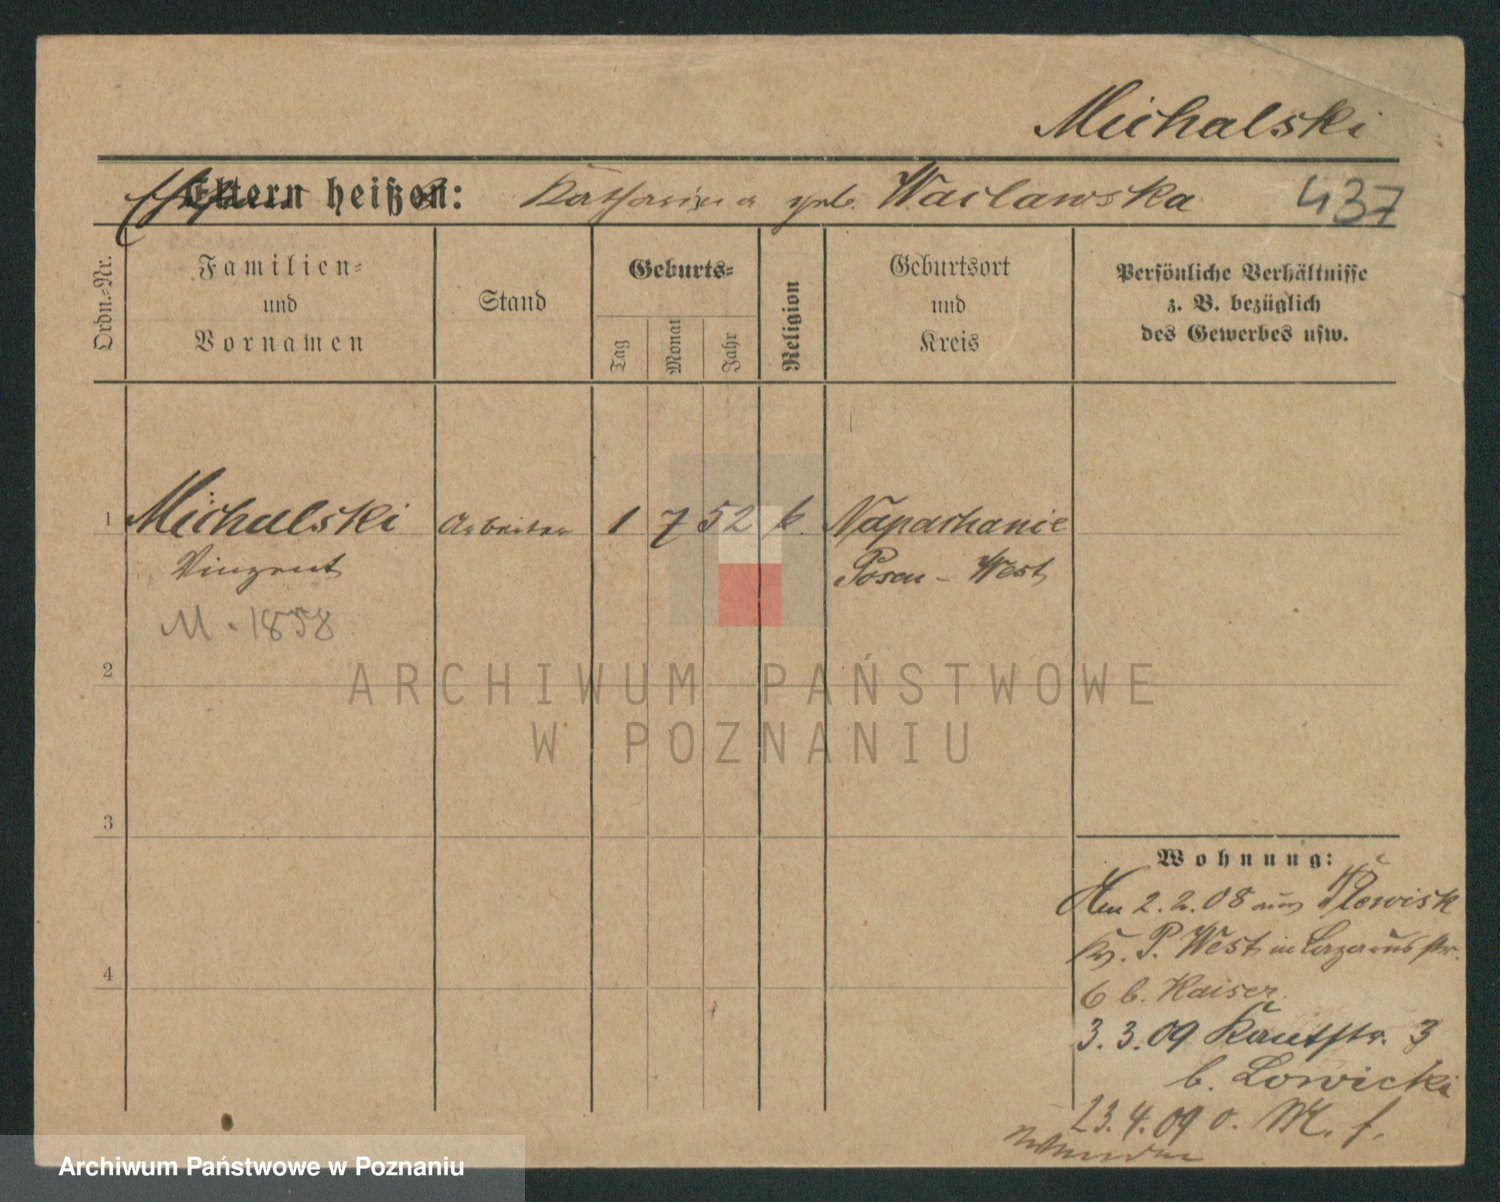 Michalski
Eltern heißen: Katharina geb. Waclawska 437
Ordn.-Nr.
Familien-
und
Vornamen
Stand
Geburts-
Tag
Monat
Jahr
Religion
Geburtsort
und
Kreis
Persönliche Verhältnisse
z. B. bezüglich
des Gewerbes usw.
1 Michalski Arbeiter 1 7 52 k. Napachanie
Vinzent Posen-West
M. 1858
2
ARCHIWUM PAŃSTWOWE
W POZNANIU
3
Wohnung:
Am 2.2.08 aus Plewisk
Kr. P. West in Lazarusstr.
4
6 b. Kaiser
3.3.09 Kantstr. 3
b. Lowicki
23.4.09 o. M. f.
Archiwum Państwowe w Poznaniu